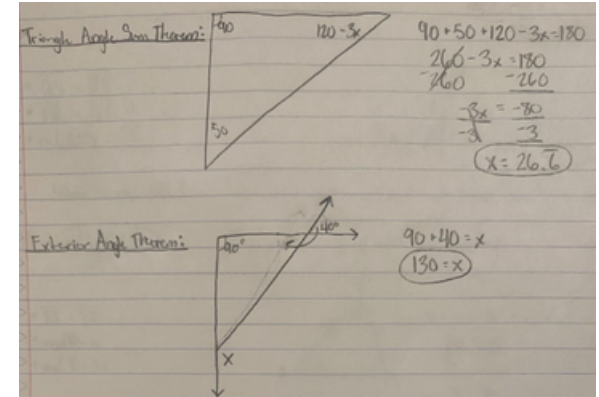 Triangle Angle Sum Theorem:
90
120-3x
50
90+50+120-3x=180
260-3x=180
-260 -260
-3x = -80
-3 -3
x= 26.6̅
Exterior Angle Theorem:
90°
40°
x
90+40=x
130=x